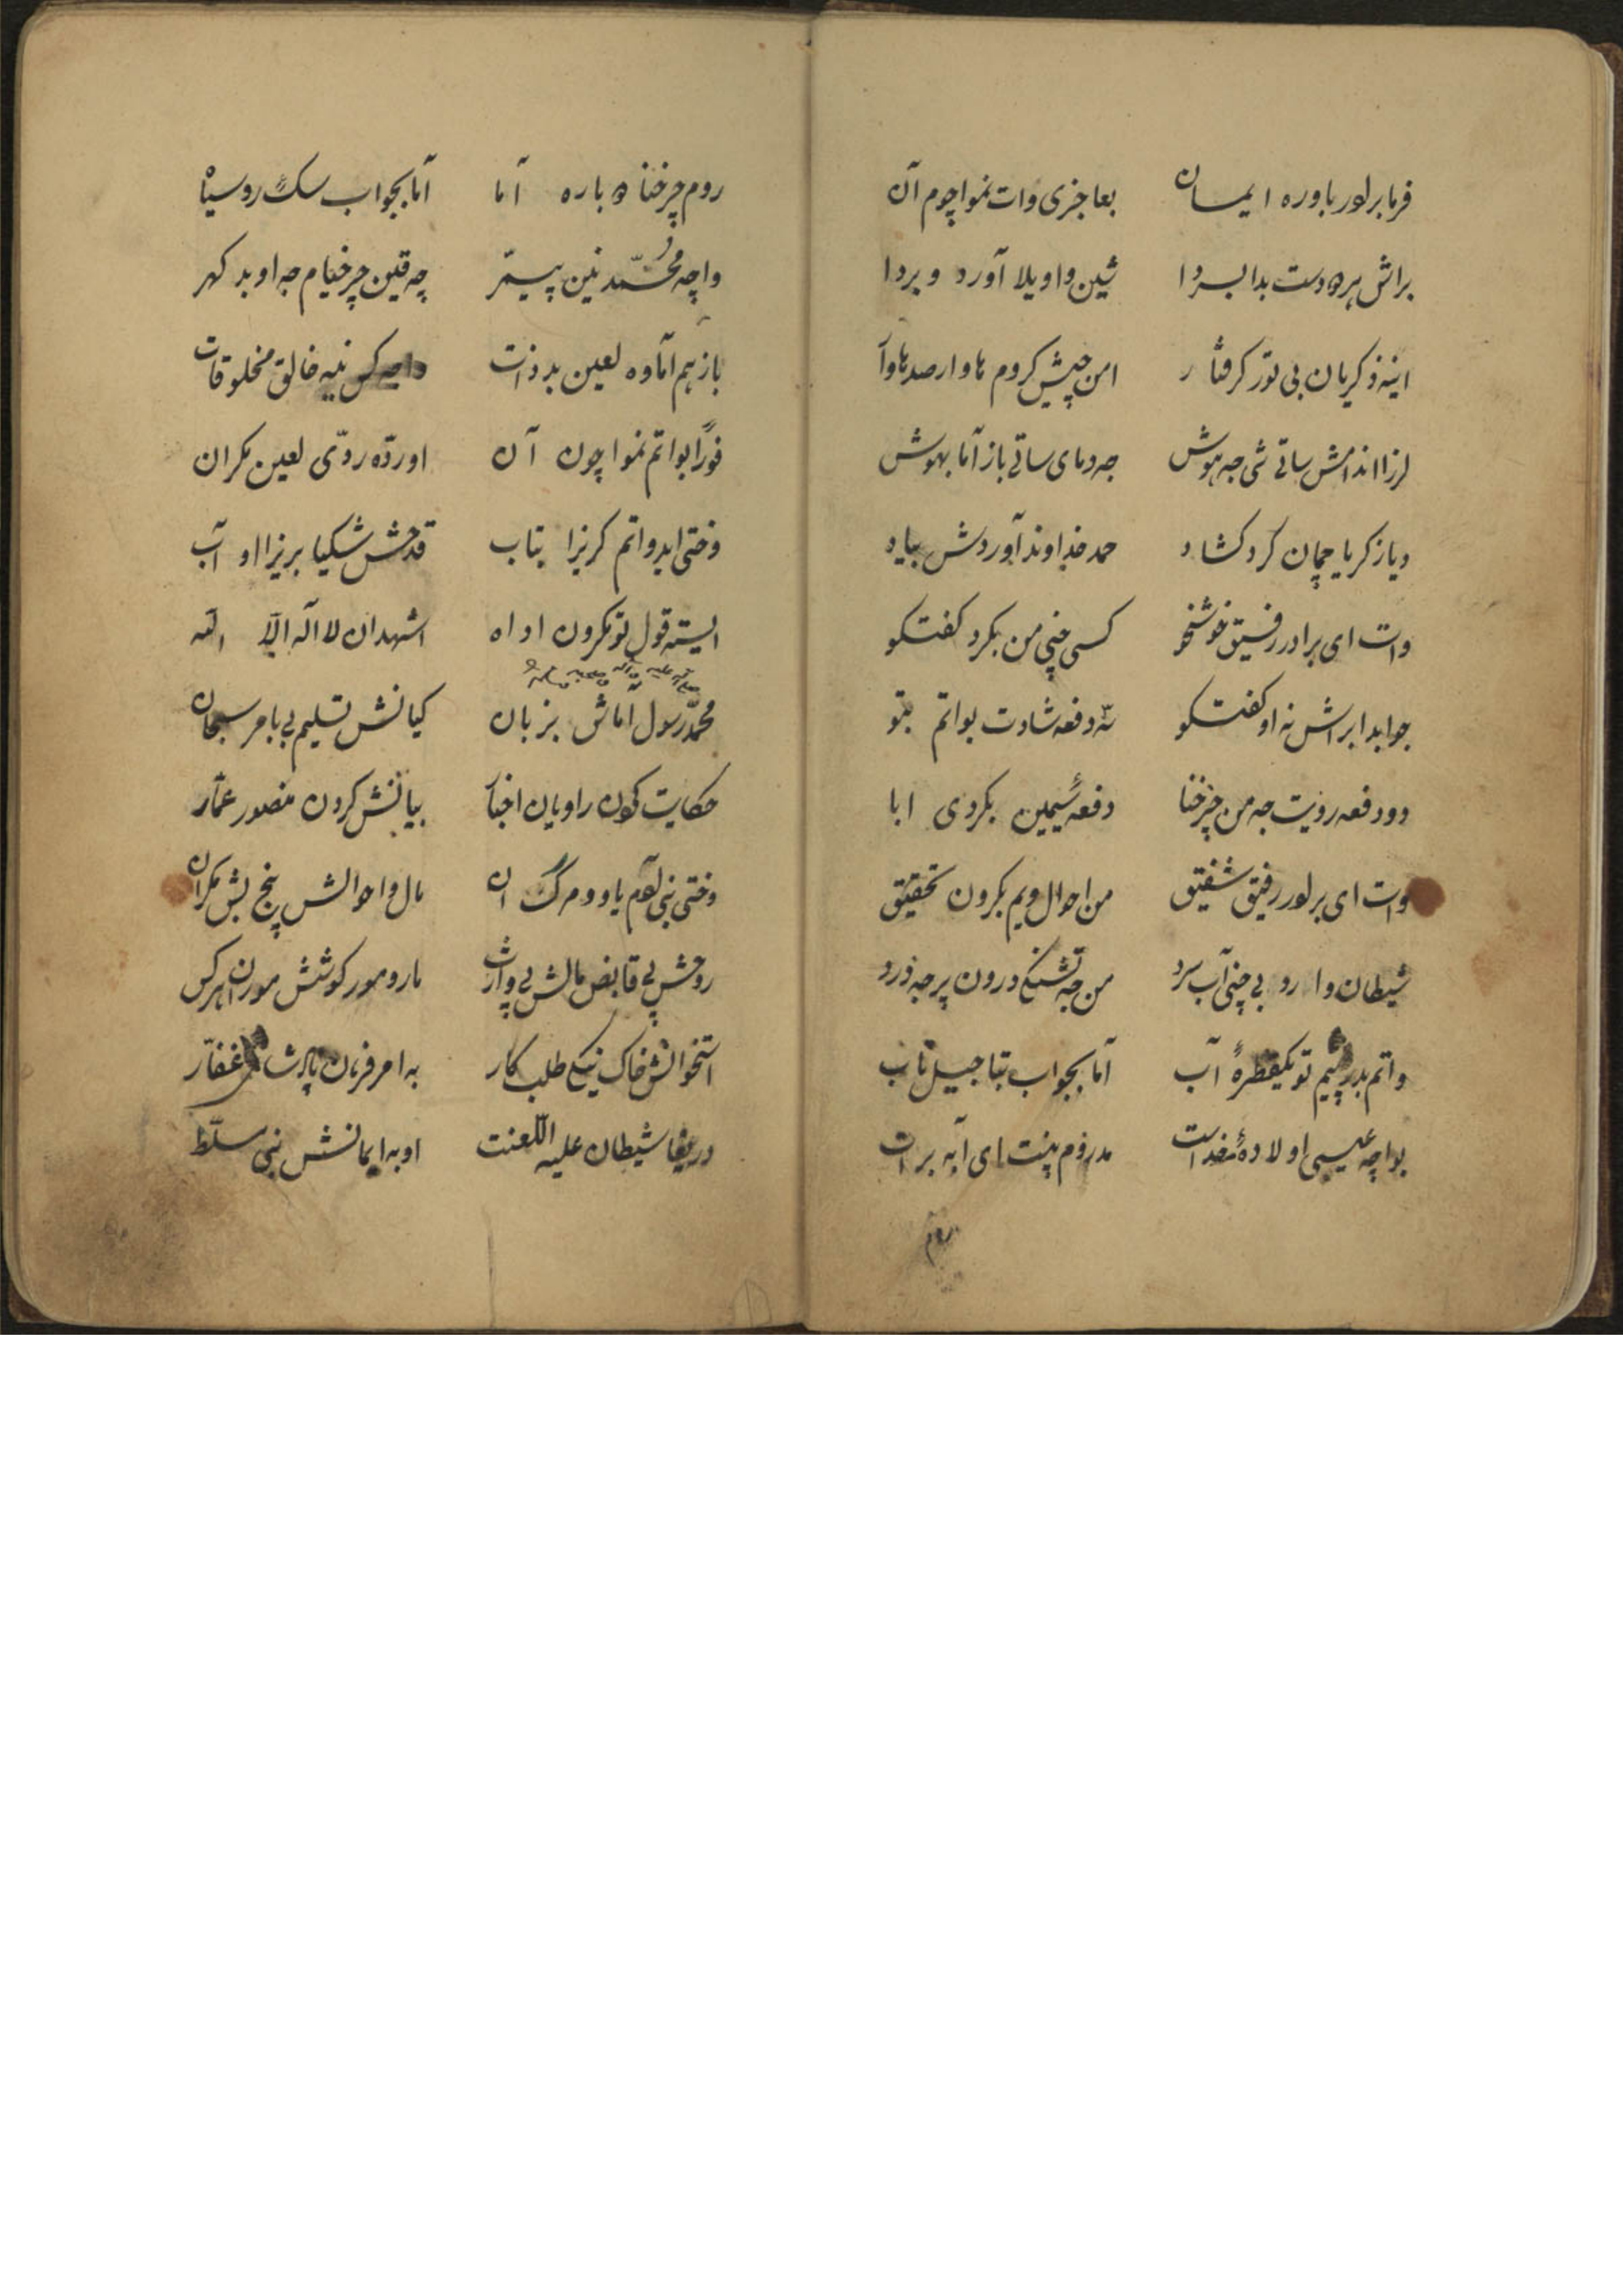 فرما برلور باوره ایمان بعاجزی وات نمواچوم آن
براش هر دست بدا بسردا شین واویلا آورد ویردا
اینه ذکریان بی تور گرفتار امن چیش کروم هاوار صد هاوا
لرزا اندامش ساتی شی جه هوش جه دمای ساتی باز آما بهوش
دیا زکریا چمان کرد گشاد حمد خداوند آوردش بیاد
وات ای برادر رفیق خوشخو کسی چنی من بکرد گفتگو
جوابدا براش نه او گفتگو سه دفعه شادت بواتم بتو
دو دفعه رویت جه من چرخنا دفعه سیمین بکردی ابا
وات ای برلور رفیق شفیق من احوال ویم بکرون تحقیق
شیطان وارو بی چنی آب سرد من جه تشنگی درون پر جه درد
واتم بدر پیم تو یکقطرهٔ آب آما بجواب بتاجیل تاب
بواچه عیسی اولادهٔ خداست مدروم پنت ای آبه برات
روم
روم چرخنا دوباره آما آما بجواب سگ روسیاه
واچه محمد نین پیغمر چه قین چرخیام جه او بد گهر
باز هم آماوه لعین بدذات واچه کس نیه خالق مخلوقات
فوراً بواتم نمواچون آن او رده ردی لعین مکران
وختی اید واتم گریزا بتاب قدحش شکیا بریزا او آب
ایسته قول تو مکرون اداه اشهد ان لا اله الا الله
صلی الله علیه وآله وصحبه وسلم
محمد رسول آماش بزبان گیانش تسلیم بی بامر سبحان
حکایت کون راویان اخبار بیانش کردن منصور عمار
وختی بنی آدم یاوو مرگ ان مال و احوالش پنج بش مکران
روحش پی قابض مالش پی وارث مار و مور گوشتش موران هرکس
استخوانش خاک نیکی طلب کار به امر فرمان پادشای غفار
دریغا شیطان علیه اللعنت او به ایمانش نبی سلط